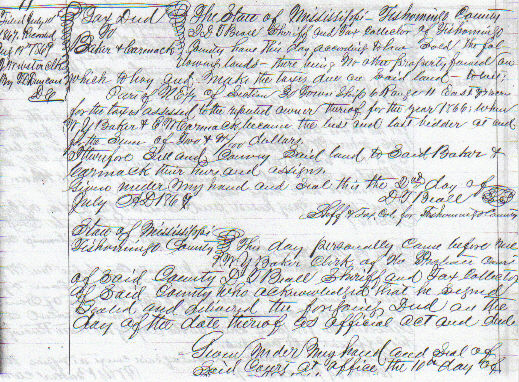 Filed July 10
1869, Record
Aug 12 1869
By T. Duncan
D.C.
Tax Deed
To
Baker & Carmack
The State of Mississippi Tishomingo County
I, D. T. Beall Sheriff and Tax Collector of Tishomingo
County have this day according to law Sold the fol-
lowing lands there being No other property found on
which to levy and make the taxes due on said land to wit:
Part of N.E. 1/4 of Section 3 Town Ship 6 Range 11 East
for the taxes assessed to the reputed owner thereof for the year 1866; When
Baker & Carmack became the best and last bidder at and
for the Sum of Two & /100 dollars.
I therefore Sell and Convey Said land to Said Baker &
Carmack their heirs and assigns.
Given under my hand and Seal this the 2nd day of
July A.D. 1869
D. T. Beall
Shff & Tax Col. for Tishomingo County
State of Mississippi
Tishomingo County This day personally came before me
Baker Clerk of the Probate Court
of Said County D. T. Beall Sheriff and Tax Collector
of Said County who acknowledged that he signed
Sealed and delivered the foregoing Deed on the
day of the date thereof as official act and deed.
Given Under my hand and Seal of
Said Court at office the 10th day of